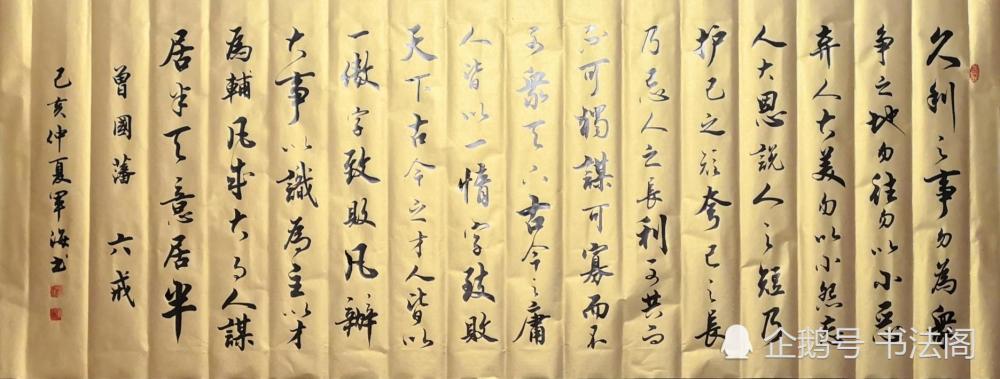 久利之事勿為眾
争之地勿往勿以小惡
弃人大美勿以小怨忘
人大恩說人之短乃
护己之短夸己之長
乃忌人之長利可共而
不可獨謀可寡而不
可眾天下古今之庸
人皆以一惰字致敗
天下古今之才人皆以
一傲字致敗凡辦
大事以識為主以才
為輔凡成大事人謀
居半天意居半
曾國藩 六戒
己亥仲夏軍海书
企鹅号 书法阁